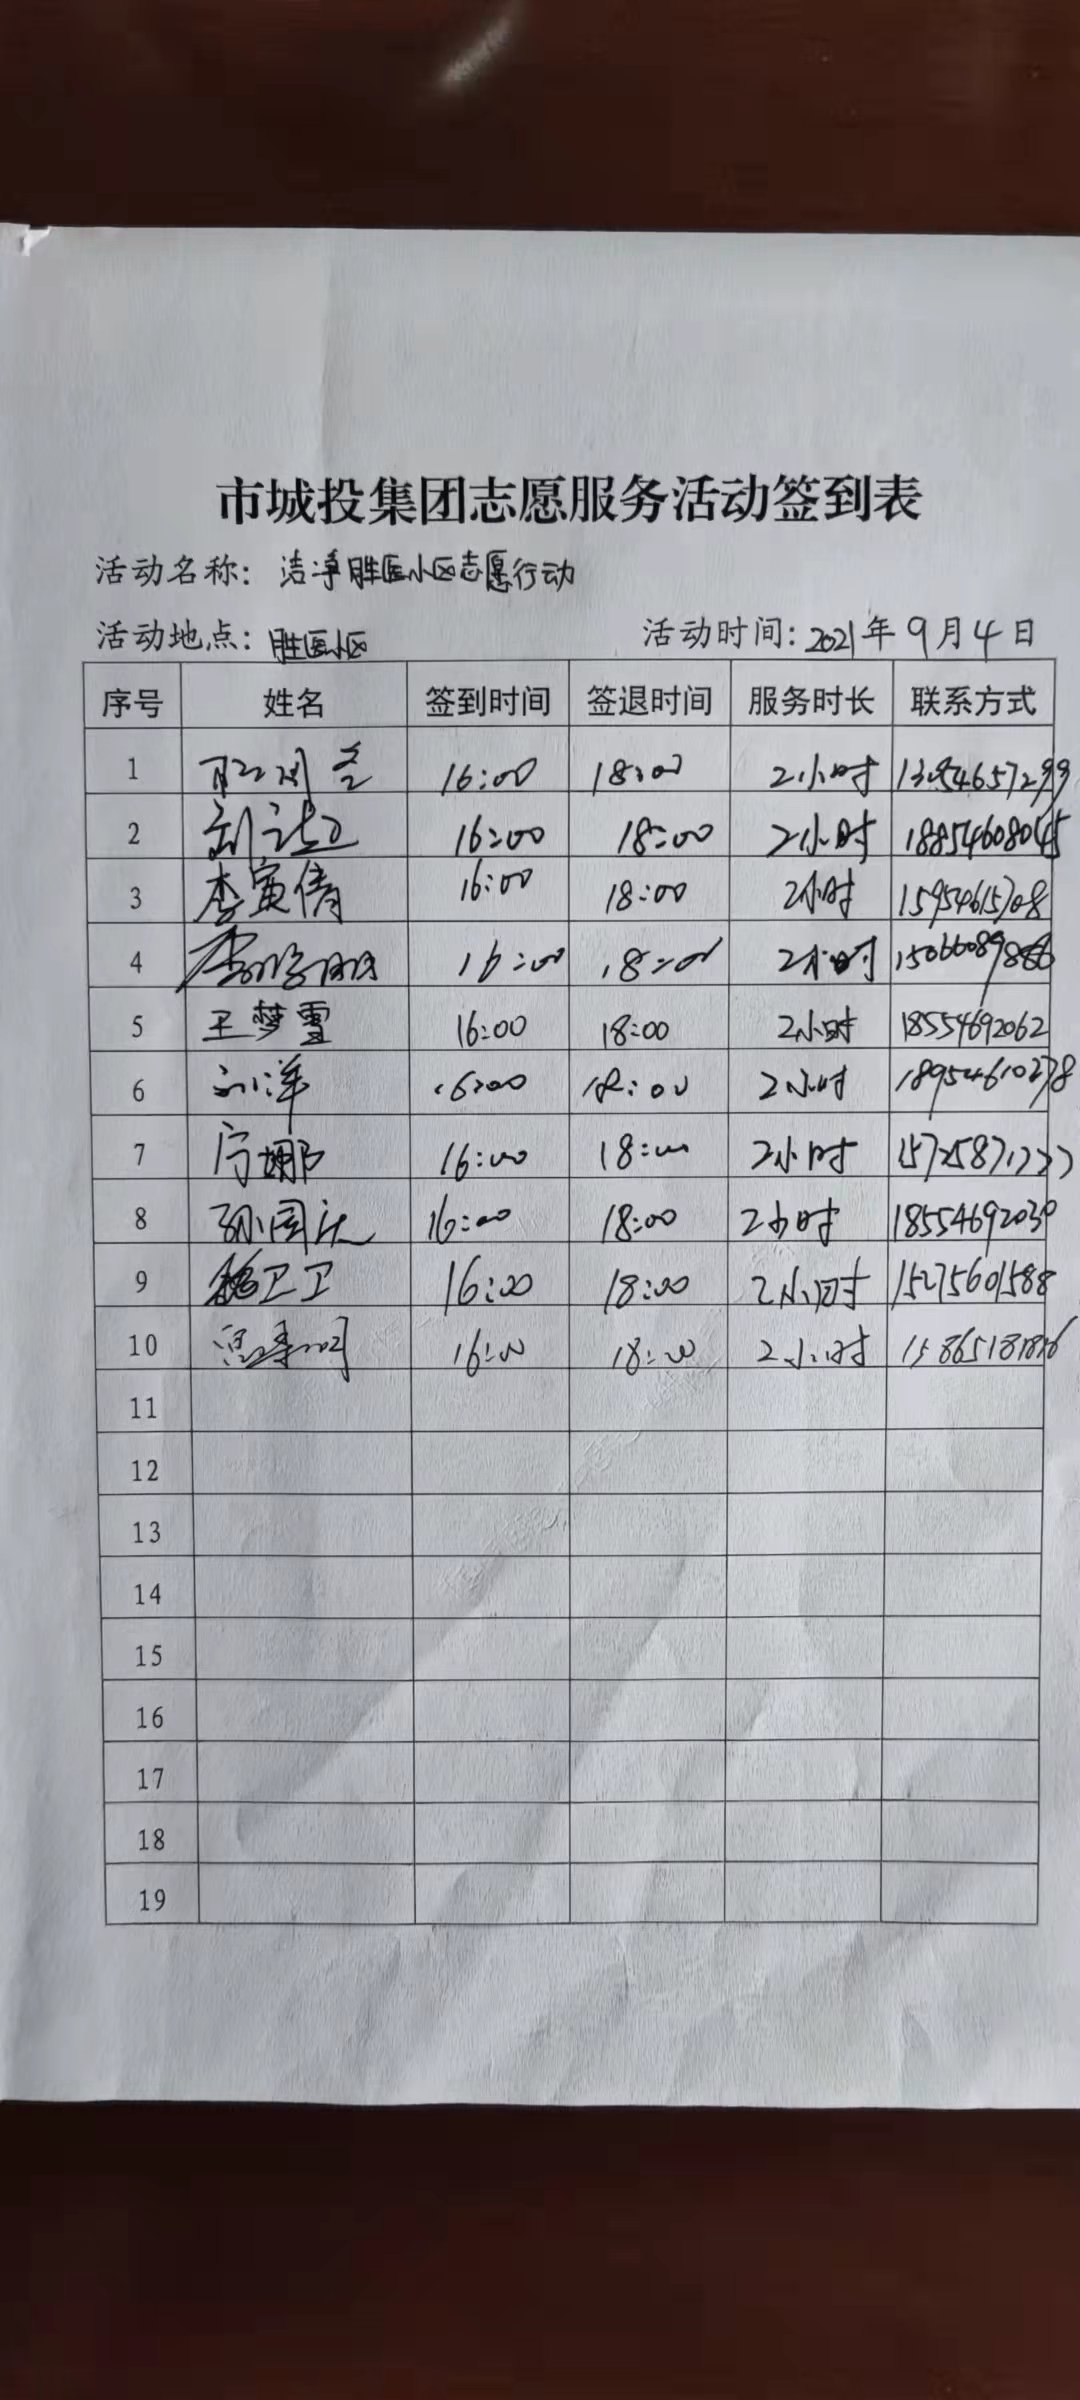 市城投集团志愿服务活动签到表
活动名称：洁净胜医小区志愿行动
活动地点：胜医小区 活动时间：2021年9月4日
序号 姓名 签到时间 签退时间 服务时长 联系方式
1 16:00 18:00 2小时
2 16:00 18:00 2小时 18854608045
3 李寅倩 16:00 18:00 2小时 15954615708
4 16:00 18:00 2小时
5 王梦雪 16:00 18:00 2小时 18554692062
6 刘洋 16:00 18:00 2小时 18954610278
7 16:00 18:00 2小时
8 孙国庆 16:00 18:00 2小时 18554692030
9 魏卫卫 16:00 18:00 2小时 15275601588
10 16:00 18:00 2小时
11
12
13
14
15
16
17
18
19